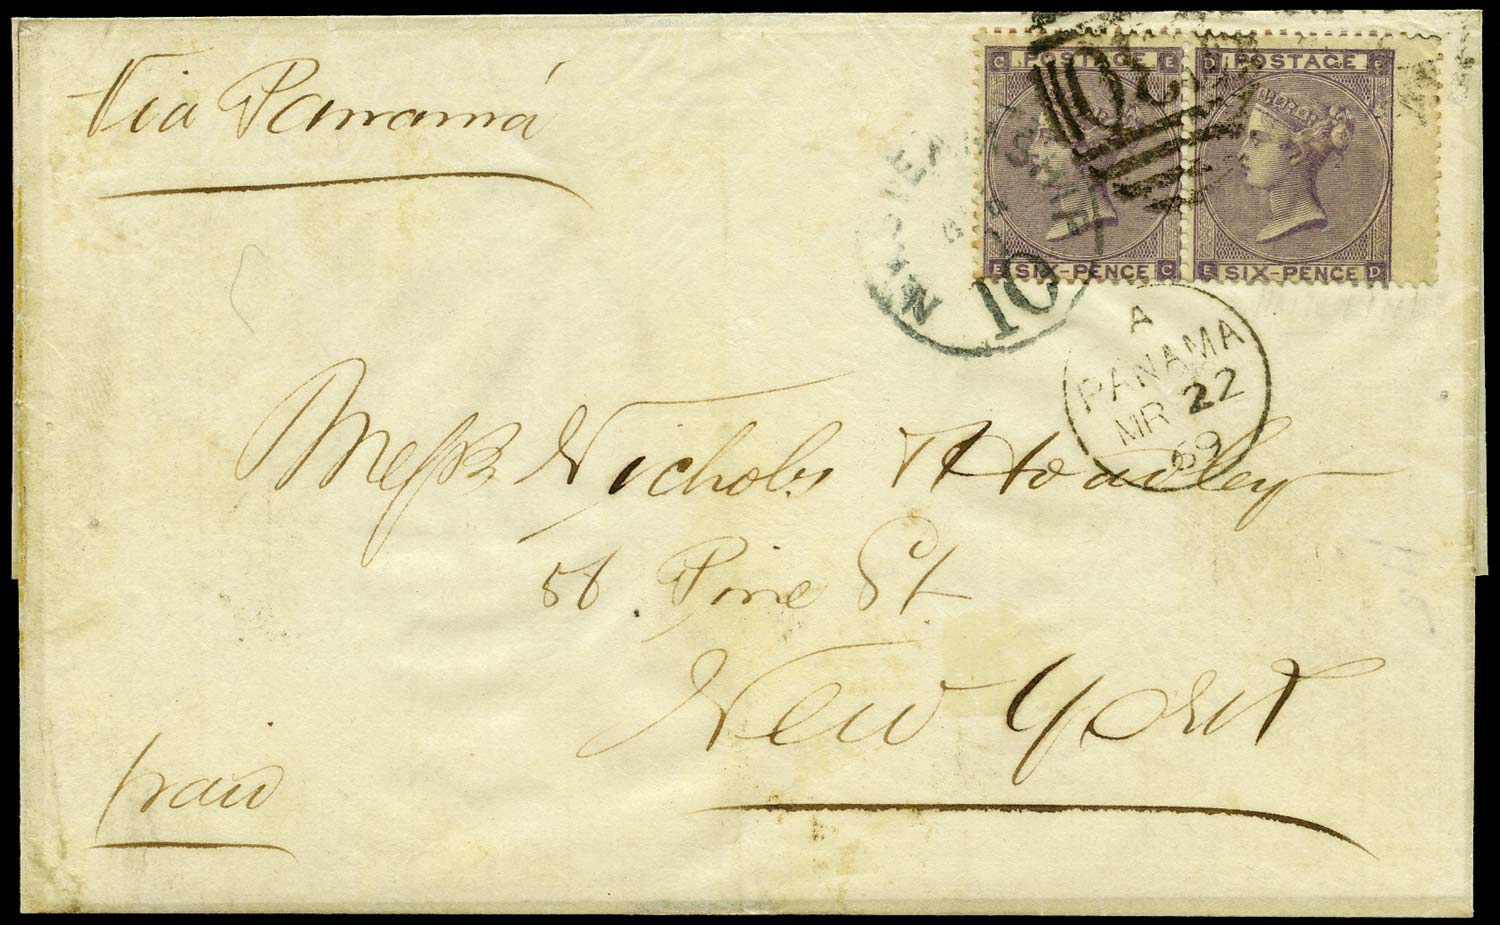 Via Panamá
C POSTAGE E D POSTAGE E
SIX-PENCE
E SIX-PENCE C E SIX-PENCE D
10
A
PANAMA
MR 22
69
Messrs Nichols & Hoadley
56. Pine St
New York